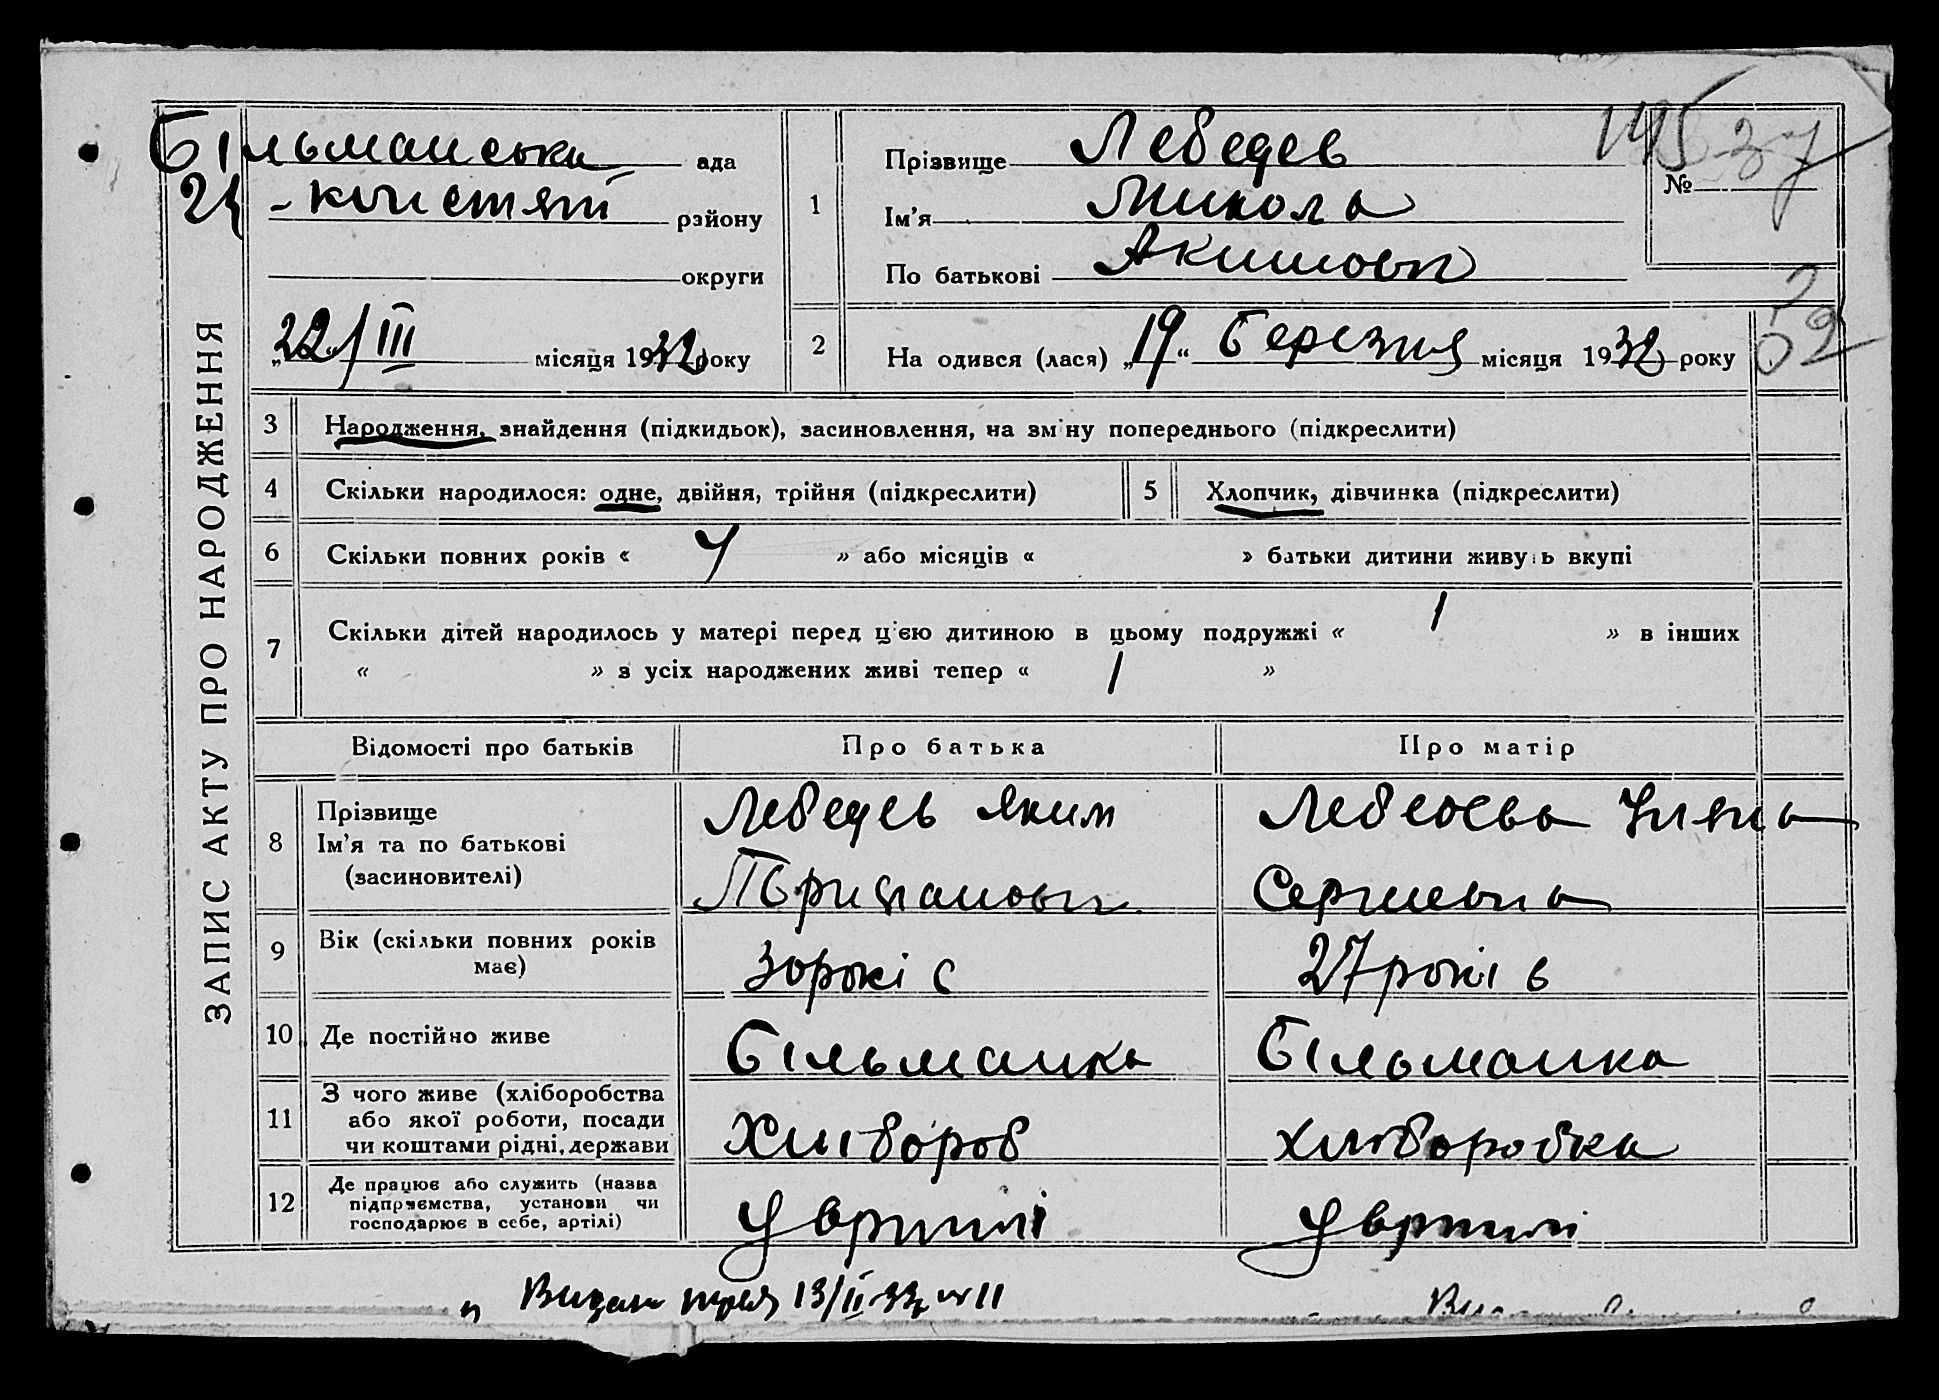 ЗАПИС АКТУ ПРО НАРОДЖЕННЯ
Більманська ада
району
округи
„22/III місяця 1932 року
1
Прізвище Лебедев
Ім'я Микола
По батькові Акимович
145
№
2
На одився (лася) „19“ Березня місяця 1932 року
3 Народження, знайдення (підкидьок), засиновлення, на зм ну попереднього (підкреслити)
4 Скільки народилося: одне, двійня, трійня (підкреслити) 5 Хлопчик, дівчинка (підкреслити)
6 Скільки повних років « 4 » або місяців « » батьки дитини живу ь вкупі
7 Скільки дітей народилось у матері перед ц єю дитиною в цьому подружжі « 1 » в інших
« » з усіх народжених живі тепер « 1 »
Відомості про батьків Про батька Про матір
8 Прізвище
Ім'я та по батькові
(засиновителі)
Лебедев Яким
Лебедева Уляна
Сергиевна
9 Вік (скільки повних років
має)
30 років 27 років
10 Де постійно живе Більманка Більманка
11 З чого живе (хліборобства
або якої роботи, посади
чи коштами рідні, держави
Хлібороб хліборобка
12 Де працює або служить (назва
підприємства, установи чи
господарює в себе, артілі)
У артилі У артилі
13/II 33 № 11